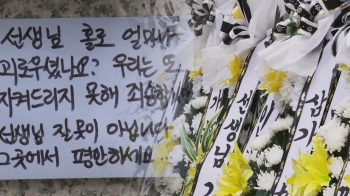 선생님 홀로 얼마나
괴로우셨나요? 우리는 또
지켜드리지 못해 죄송합니다
선생님 잘못이 아닙니다
그곳에서 평안하세요
선생님
삼가